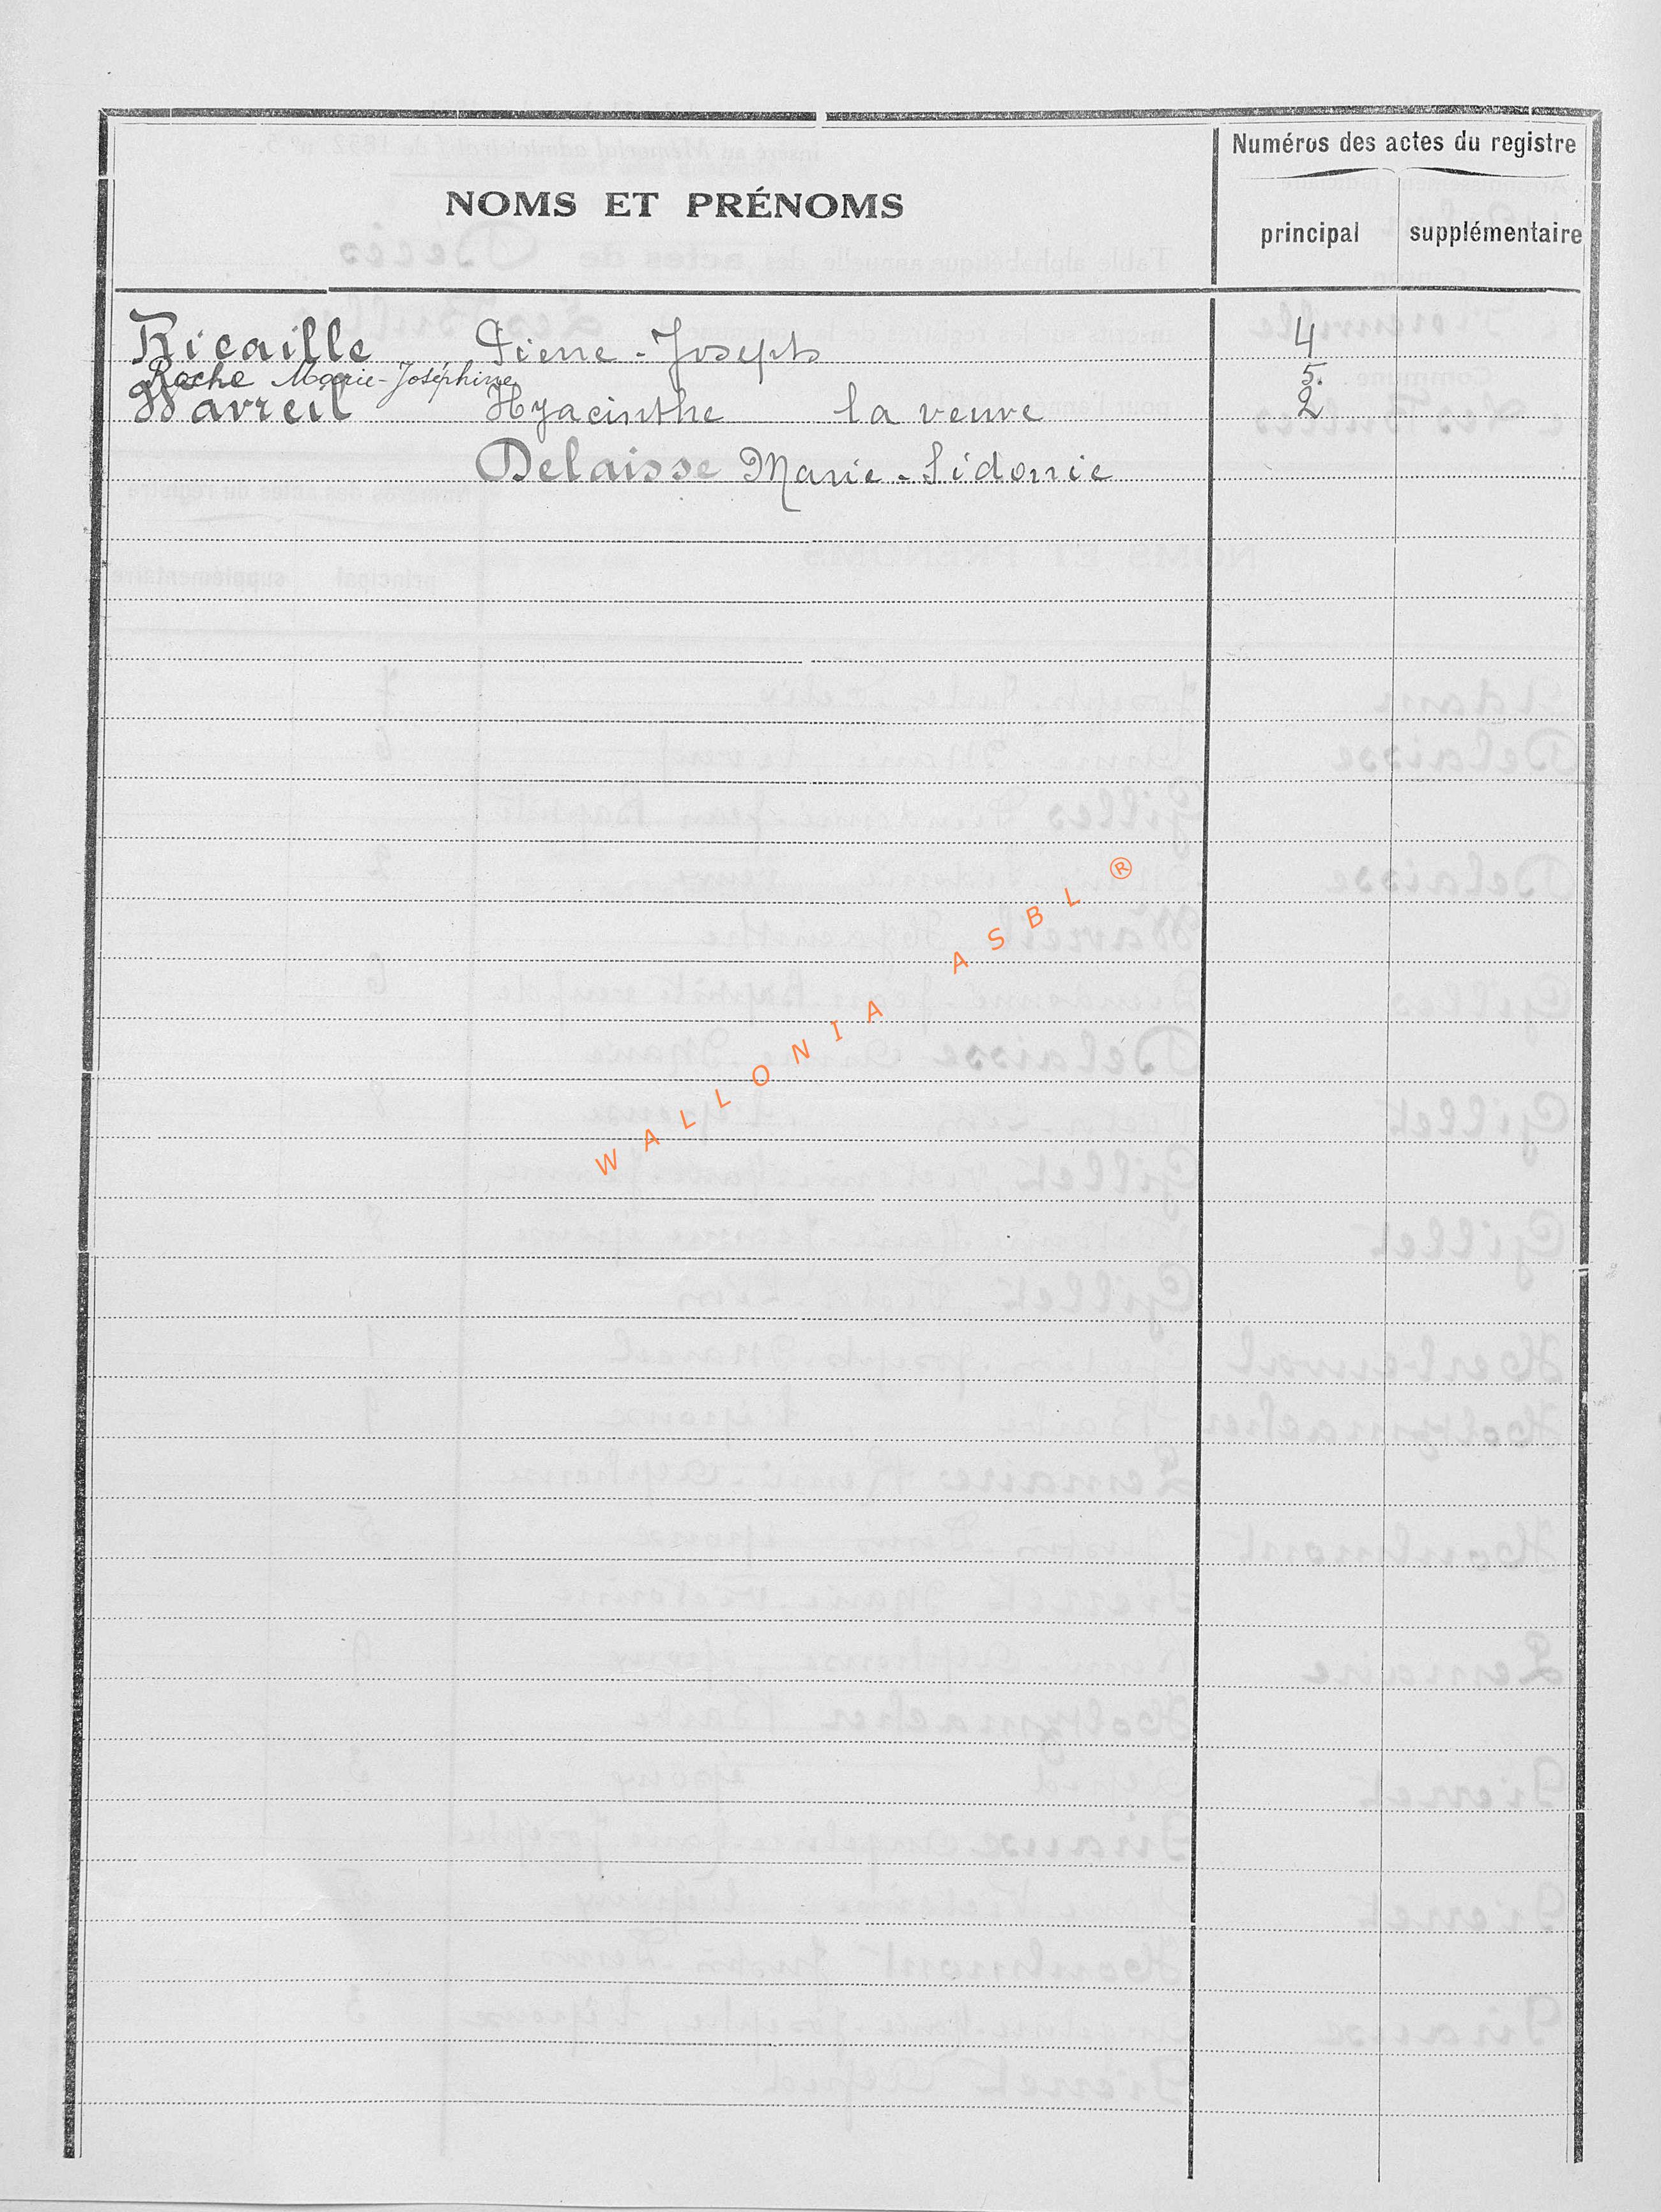 NOMS ET PRÉNOMS
Numéros des actes du registre
principal supplémentaire
Ricaille Pierre-Joseph 4
Roche Marie-Joséphine 5.
Wavreil Hyacinthe la veuve 2
Delaisse Marie-Sidonie
WALLONIA ASBL ®